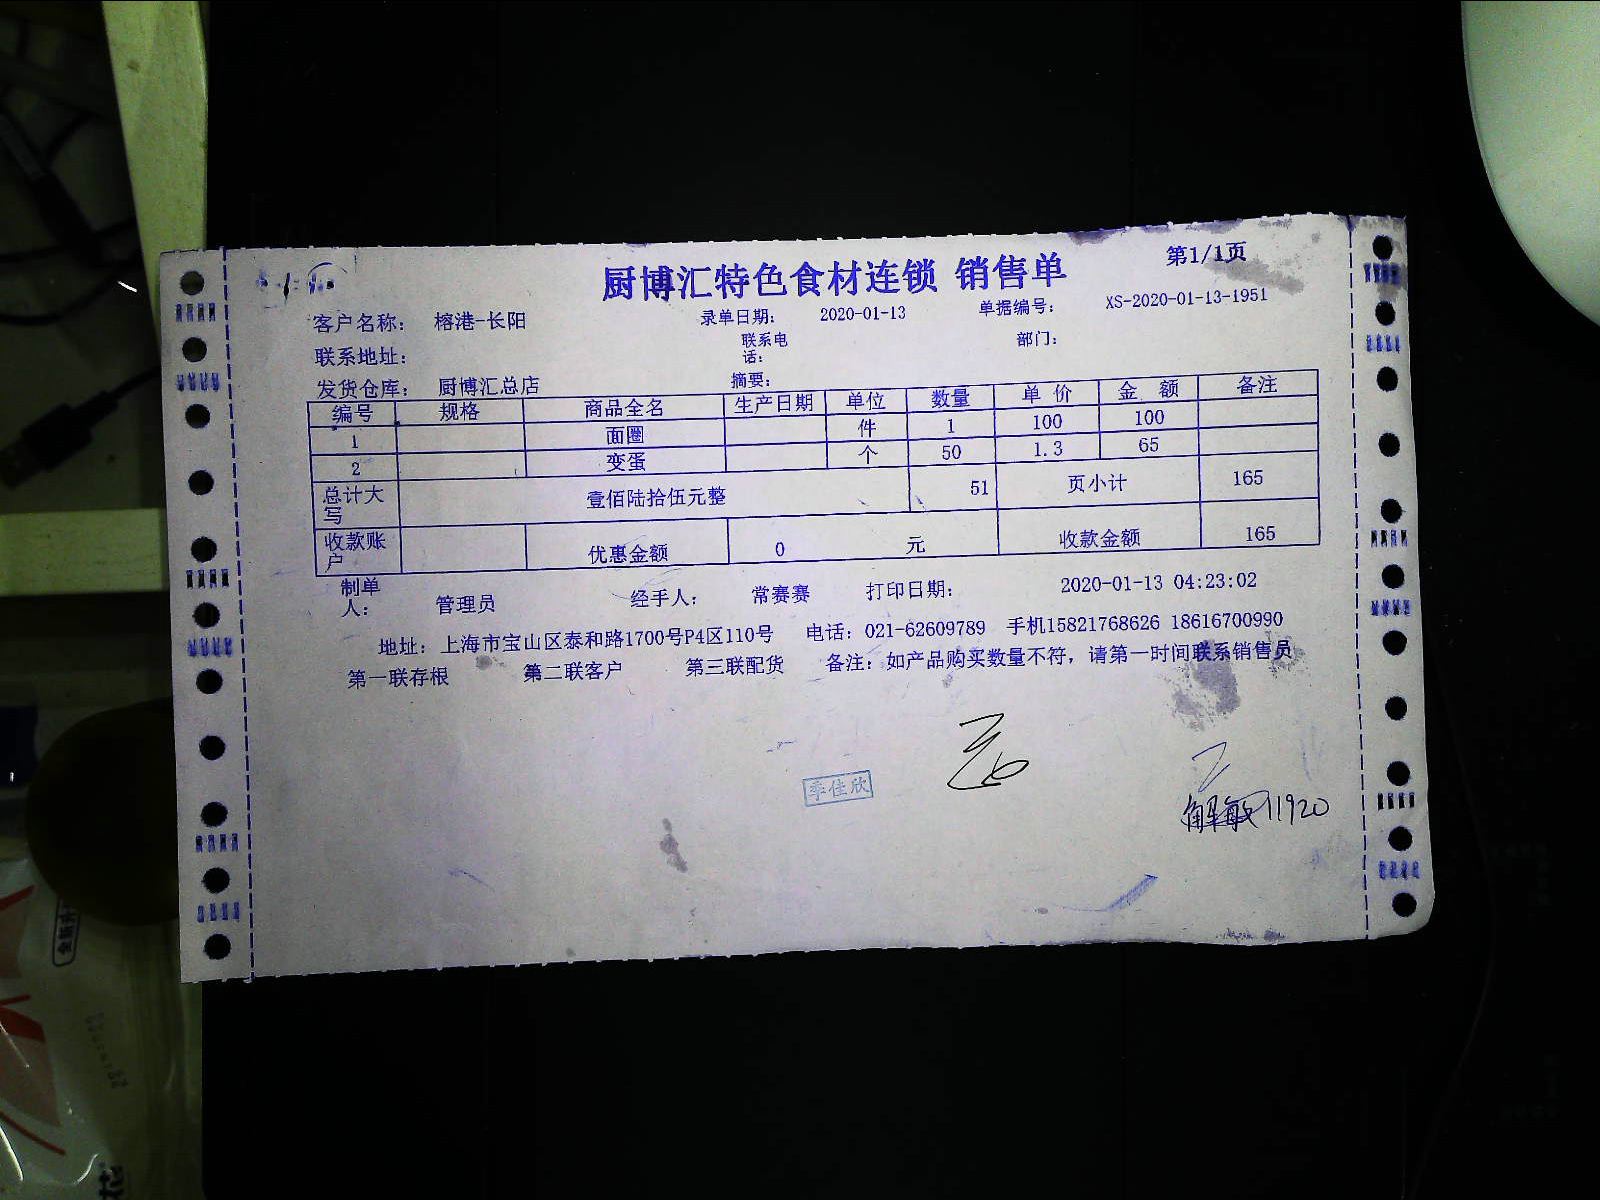 厨博汇特色食材连锁 销售单 第1/1页
客户名称： 榕港-长阳 录单日期： 2020-01-13 单据编号： XS-2020-01-13-1951
联系地址： 联系电话： 部门：
发货仓库： 厨博汇总店 摘要：
编号 规格 商品全名 生产日期 单位 数量 单 价 金 额 备注
1 面圈 件 1 100 100
2 变蛋 个 50 1.3 65
总计大写 壹佰陆拾伍元整 51 页小计 165
收款账户 优惠金额 0 元 收款金额 165
制单人： 管理员 经手人： 常赛赛 打印日期： 2020-01-13 04:23:02
地址：上海市宝山区泰和路1700号P4区110号 电话：021-62609789 手机15821768626 18616700990
第一联存根 第二联客户 第三联配货 备注：如产品购买数量不符，请第一时间联系销售员
季佳欣
解敏 11920